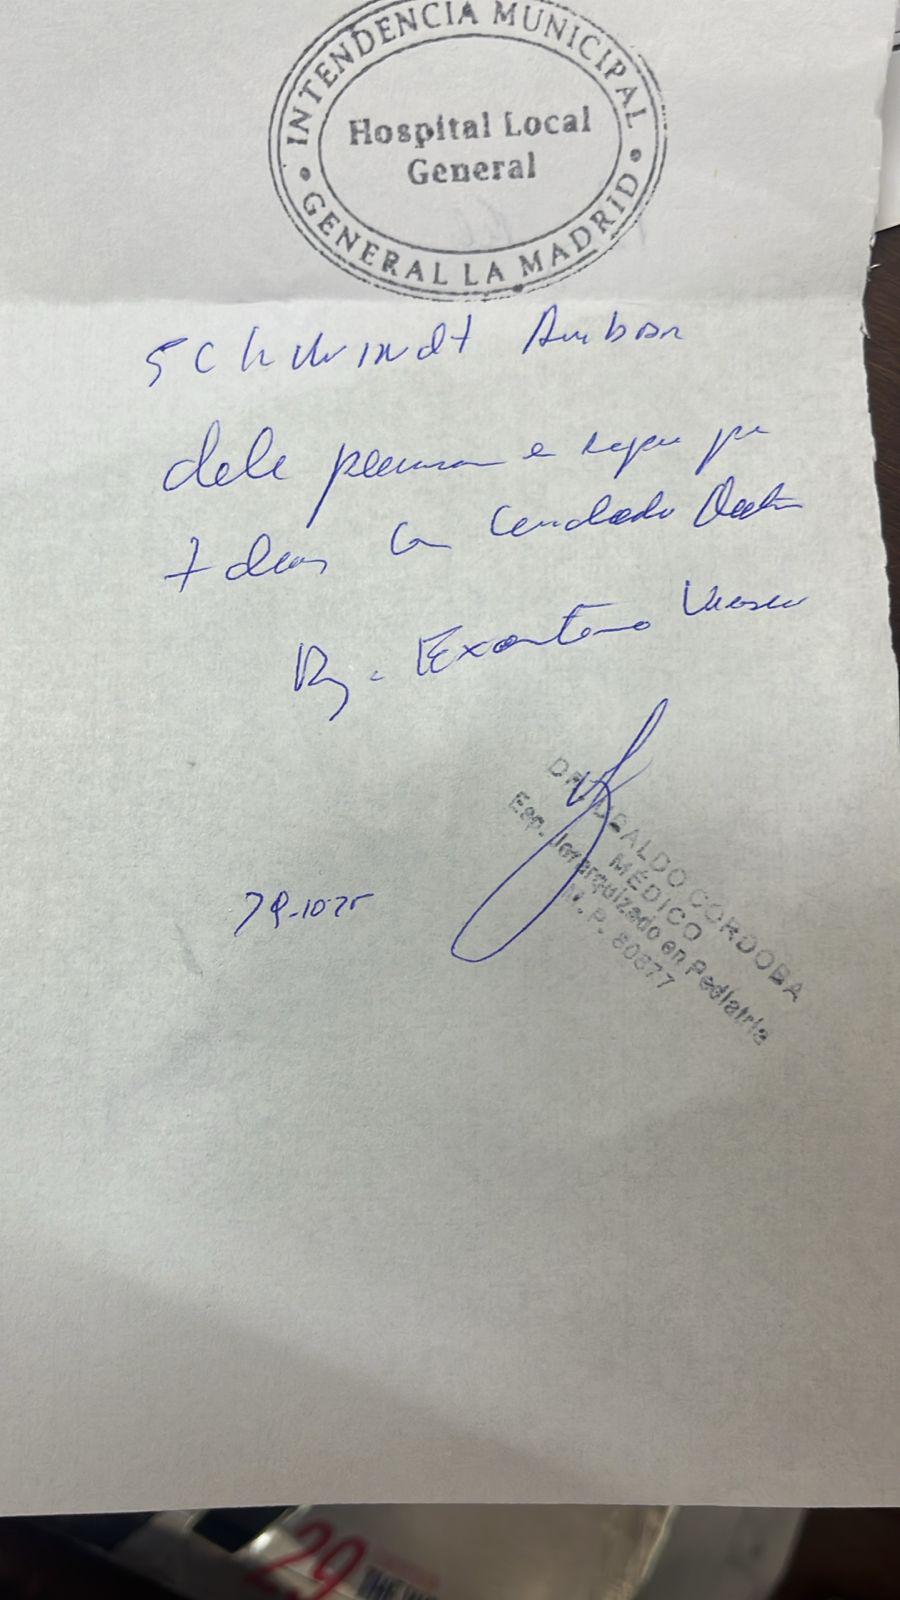 INTENDENCIA MUNICIPAL
Hospital Local
General
GENERAL LA MADRID
Schwindt
debe permanecer en reposo por
7 días con cuidado
Dg. Exantema Viral
DR. UBALDO CORDOBA
MÉDICO
Esp. Jerarquizado en Pediatría
M.P. 80877
29